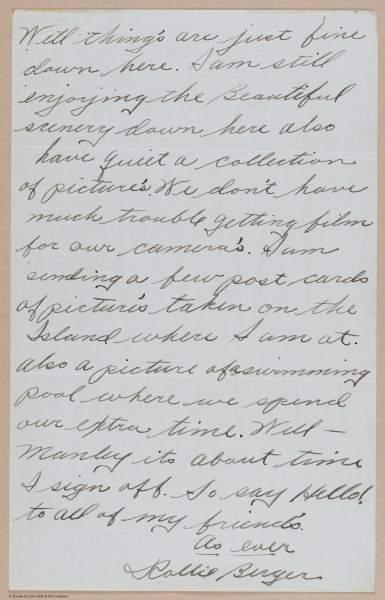 Well thing's are just fine
down here. I am still
enjoying the Beautiful
scenery down here also
have quiet a collection
of picture's. We don't have
much trouble getting film
for our camera's. I am
sending a few post cards
of picture's taken on the
Island where I am at.
also a picture of a swimming
pool where we spend
our extra time. Well —
Manley its about time
I sign off. So say Hello!
to all of my friend's.
As ever
Rollie Berger